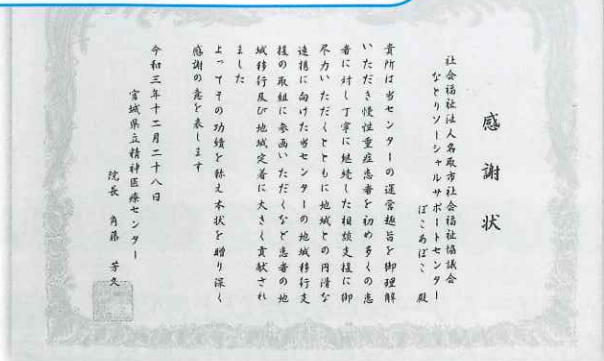 感謝状
社会福祉法人名取市社会福祉協議会
なとりソーシャルサポートセンター
ぽこあぽこ 殿
貴所は当センターの運営趣旨を御理解
いただき慢性重症患者を初め多くの患
者に対し丁寧に継続した相談支援に御
尽力いただくとともに地域との円滑な
連携に向けた当センターの地域移行支
援の取組に参画いただくなど患者の地
域移行及び地域定着に大きく貢献され
ました
よってその功績を称え本状を贈り深く
感謝の意を表します
令和三年十二月二十八日
宮城県立精神医療センター
院長 角藤 芳久